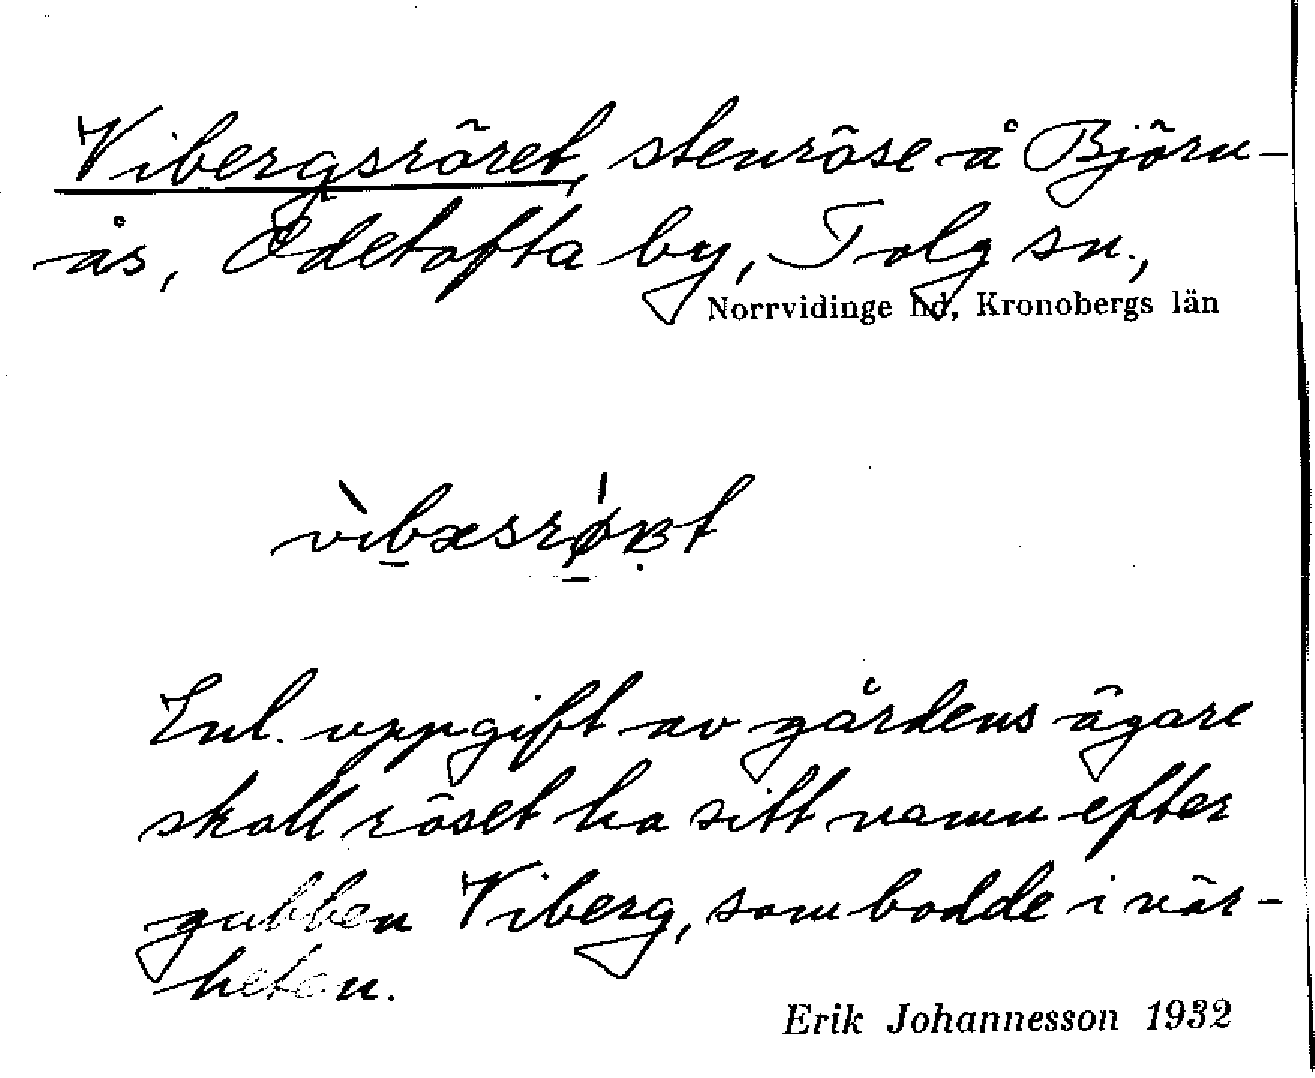 Vibergsröret, stenröse å Björn-
ås, Ödetofta by, Tolg sn.,
Norrvidinge hd, Kronobergs län
Enl. uppgift av gårdens ägare
skall röset ha sitt namn efter
gubben Viberg, som bodde i när-
heten.
Erik Johannesson 1932